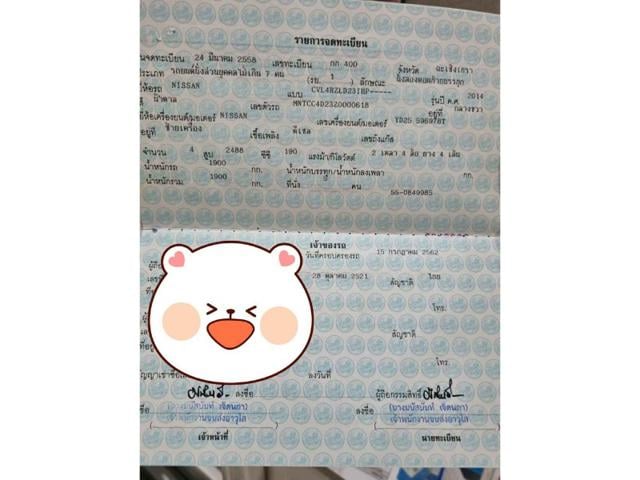 รายการจดทะเบียน
วันจดทะเบียน 24 มีนาคม 2558 เลขทะเบียน กก 400 จังหวัด ฉะเชิงเทรา
ประเภท รถยนต์นั่งส่วนบุคคลไม่เกิน 7 คน (รย. 1 ) ลักษณะ
ยี่ห้อรถ NISSAN แบบ CVL4RZLD23IHP----- รุ่นปี ค.ศ. 2014
สี น้ำตาล เลขตัวรถ MNTCC4D23Z0000618 อยู่ที่ กลางขวา
ยี่ห้อเครื่องยนต์/มอเตอร์ NISSAN เลขเครื่องยนต์/มอเตอร์ YD25
อยู่ที่ ซ้ายเครื่อง เชื้อเพลิง ดีเซล เลขถังแก๊ส
จำนวน 4 สูบ 2488 ซีซี 190 แรงม้า/กิโลวัตต์ 2 เพลา 4 ล้อ ยาง 4 เส้น
น้ำหนักรถ 1900 กก. น้ำหนักบรรทุก/น้ำหนักลงเพลา กก.
น้ำหนักรวม 1900 กก. ที่นั่ง คน 55-0849985
เจ้าของรถ
วันที่ครอบครองรถ 15 กรกฎาคม 2562
ผู้ถือ
28 ตุลาคม 2521 สัญชาติ ไทย
โทร.
สัญชาติ
ที่อยู่ โทร.
สัญญาเช่าซื้อ ลงวันที่
ลงชื่อ ผู้ถือกรรมสิทธิ์
ลงชื่อ
เจ้าหน้าที่ นายทะเบียน